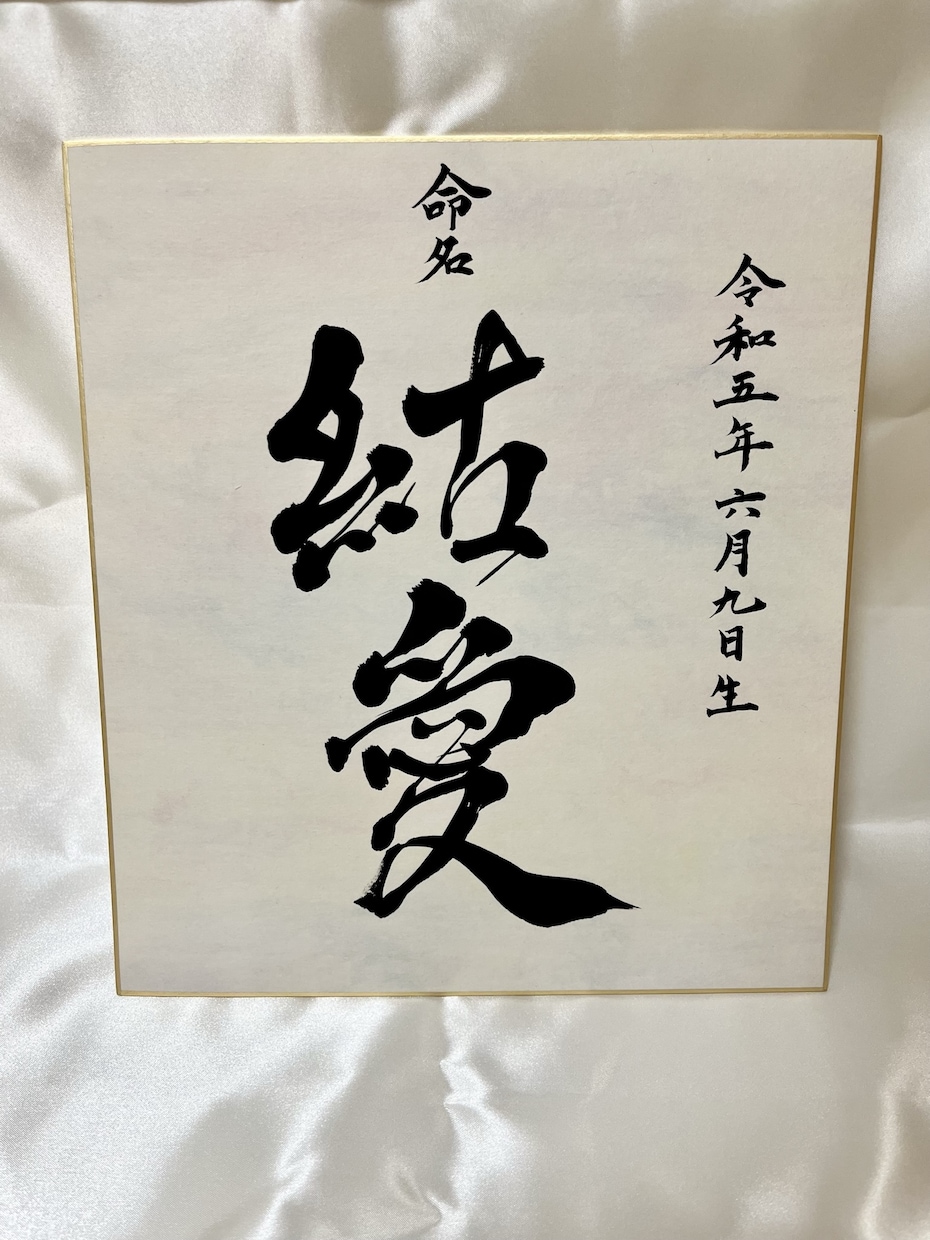 令和五年六月九日生
命名
結愛